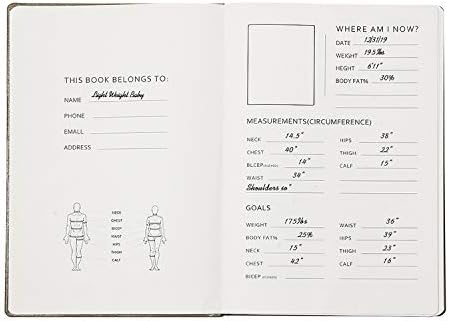 THIS BOOK BELONGS TO:
NAME Light Weight Baby
PHONE
EMALL
ADDRESS
NECK
CHEST
BICEP
WAIST
HIPS
THIGH
CALF
WHERE AM I NOW?
DATE 12/31/19
WEIGHT 195lbs
HEGHT 6'11"
BODY FAT% 30%
MEASUREMENTS(CIRCUMFERENCE)
NECK 14.5" HIPS 38"
CHEST 40" THIGH 22"
BLCEP 14" CALF 15"
WAIST 34"
Shoulders 50"
GOALS
WEIGHT 175lbs WAIST 36"
BODY FAT% 25% HIPS 39"
NECK 15" THIGH 23"
CHEST 42" CALF 16"
BICEP